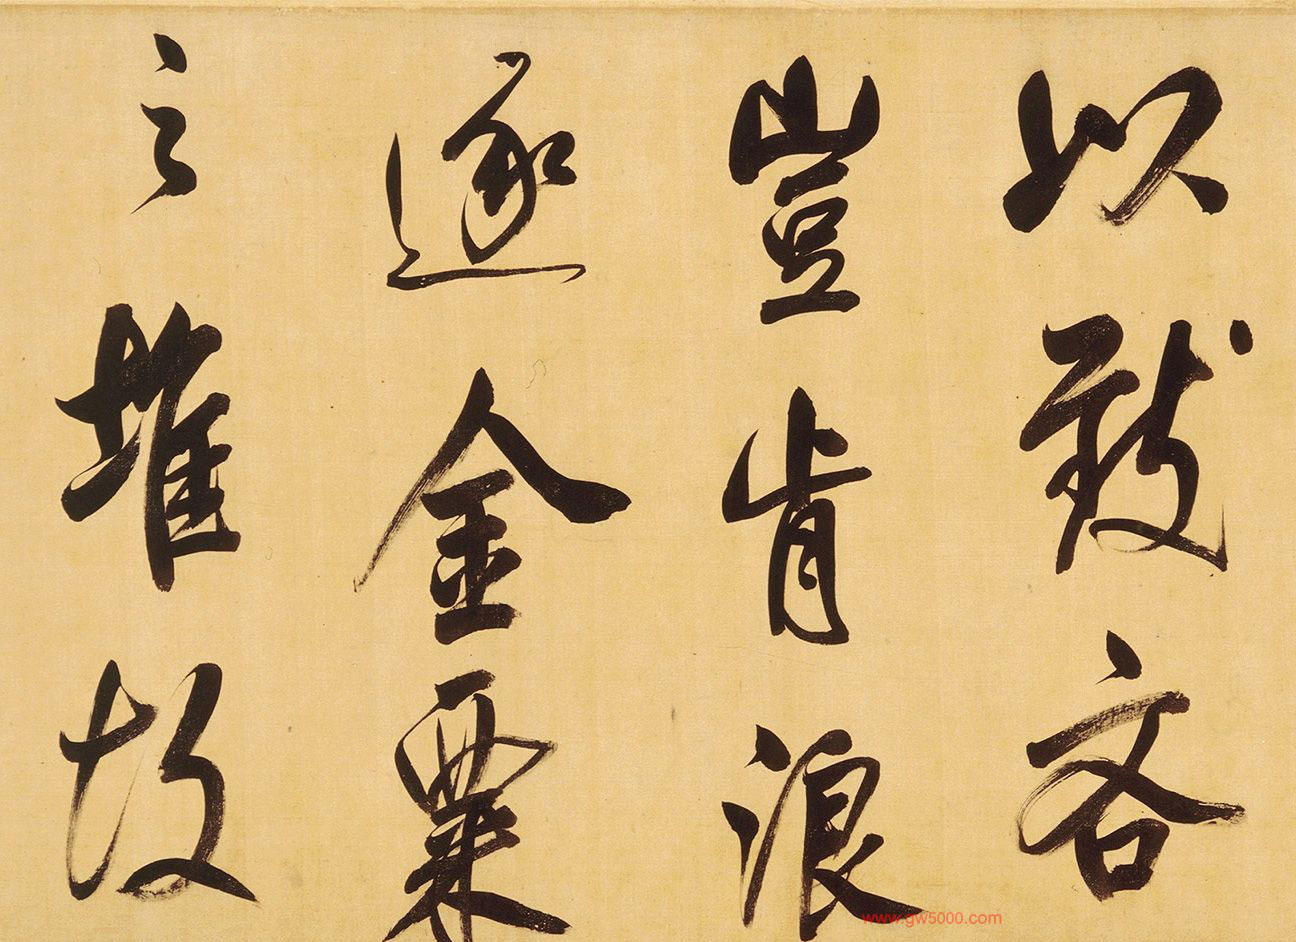 以致吝
豈肯浪
逐金粟
之堆故
www.gw5000.com